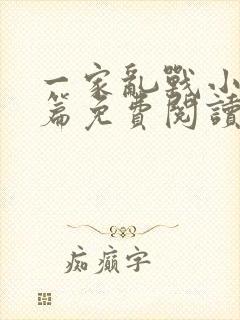 一家亂戰小
篇免費閱讀
痴癲字